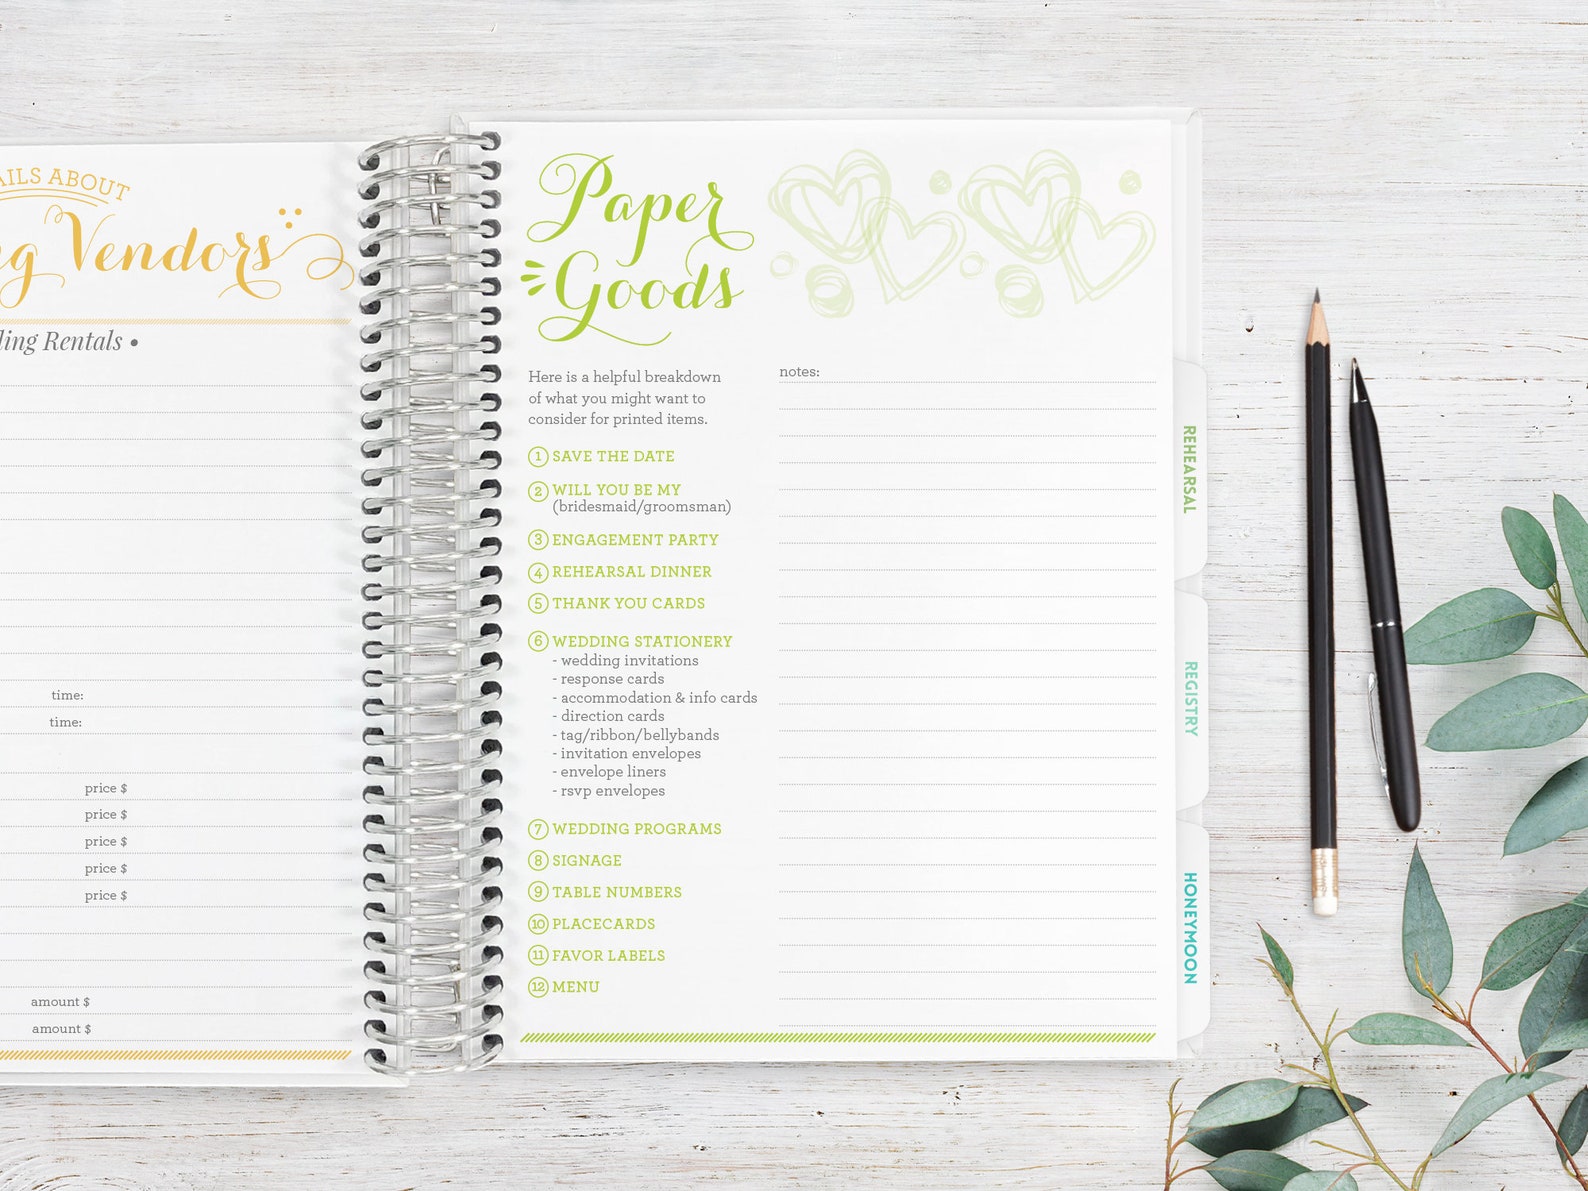 AILS ABOUT
Vendors
Rentals •
time:
time:
price $
price $
price $
price $
price $
amount $
amount $
Paper
Goods
Here is a helpful breakdown
of what you might want to
consider for printed items.
1 SAVE THE DATE
2 WILL YOU BE MY
(bridesmaid/groomsman)
3 ENGAGEMENT PARTY
4 REHEARSAL DINNER
5 THANK YOU CARDS
6 WEDDING STATIONERY
- wedding invitations
- response cards
- accommodation & info cards
- direction cards
- tag/ribbon/bellybands
- invitation envelopes
- envelope liners
- rsvp envelopes
7 WEDDING PROGRAMS
8 SIGNAGE
9 TABLE NUMBERS
10 PLACECARDS
11 FAVOR LABELS
12 MENU
notes:
REHEARSAL
REGISTRY
HONEYMOON